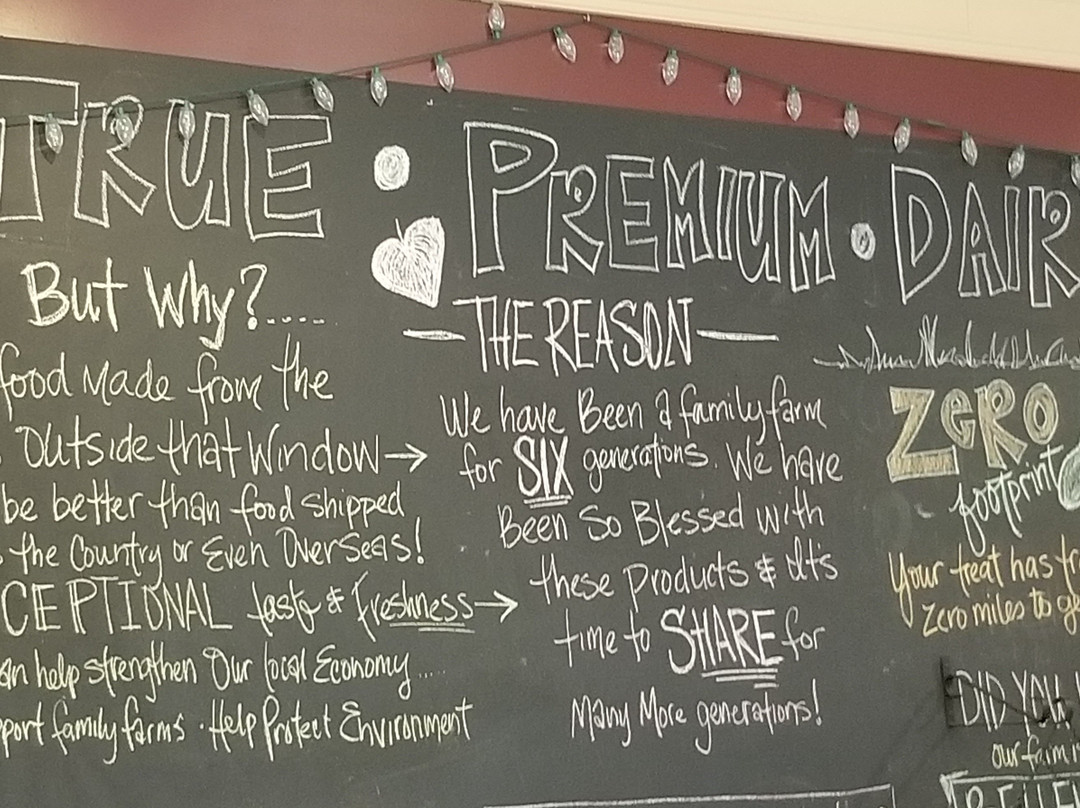 TRUE • PREMIUM • DAIR
But Why?.....
food Made from the
Outside that Window→
be better than food shipped
the Country or Even Overseas!
CEPTIONAL taste & freshness→
an help strengthen Our local Economy....
port family farms • Help Protect Environment
— THE REASON —
We have Been a family farm
for SIX generations. We have
Been So Blessed with
these Products & It's
time to SHARE for
Many More generations!
ZERO
footprint
Your treat has tr
Zero miles to ge
DID YOU
our farm